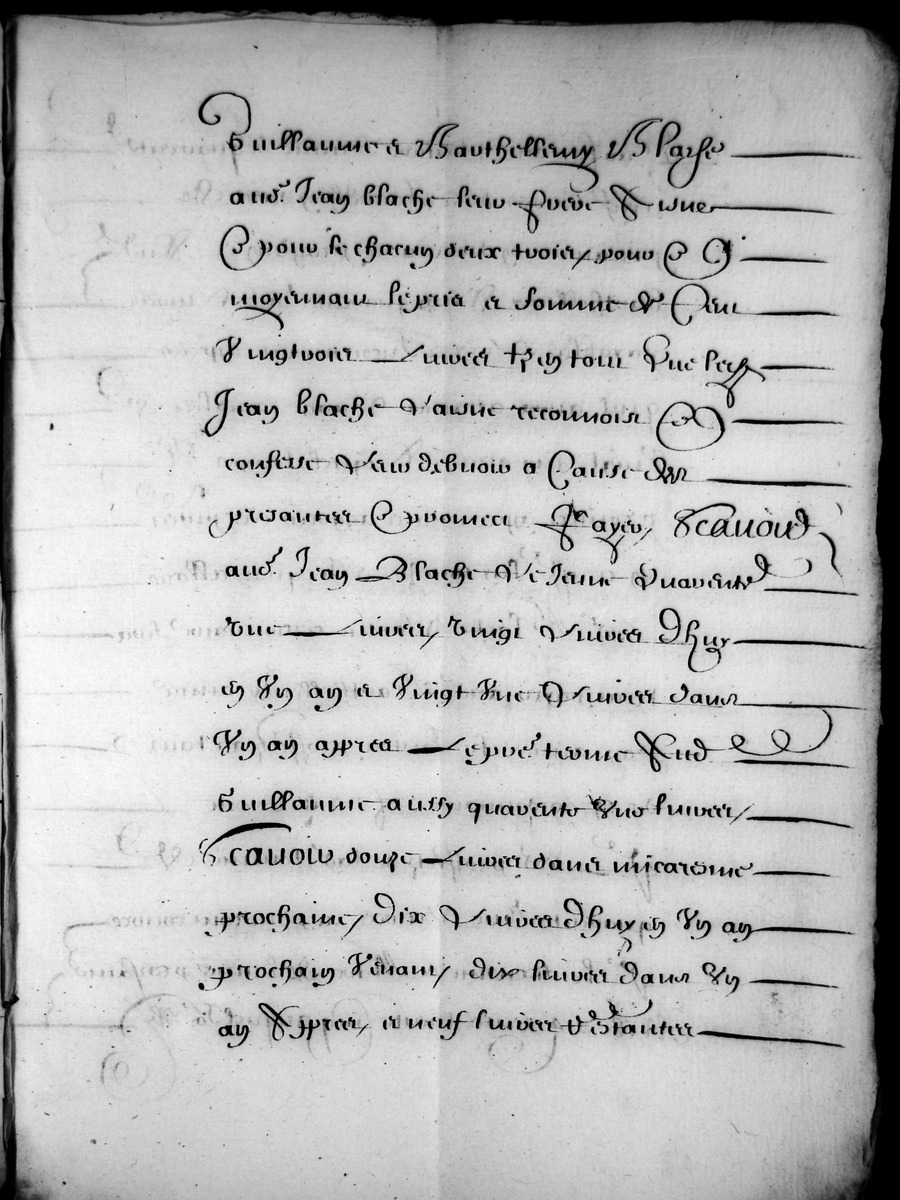 Guillaume et Barthellemy Blache
aud. Jean blache leur frere Aisne
Et pour le chacun deux trois, pour Et
moyennant le prix et somme de Cent
Vingtrois Livres en tout Que led
Jean blache L'aisne reconnoit Et
confesse Leur debvoir a Cause des
presantes Et promect Payer, Scauoir
aud. Jean Blache Le Jeune Quarente
Une Livres, Vingt Livres Dhuy
en Un an et Vingt Une Livres dans
Un an appres Le pre. terme Aud
Guillaume aussy quarente Une livres,
Scauoir douze Livres dans micaresme
prochaine, Dix Livres Dhuy en Un an
prochain Venant, dix livres dans Un
an Appres, et neuf livres restantes